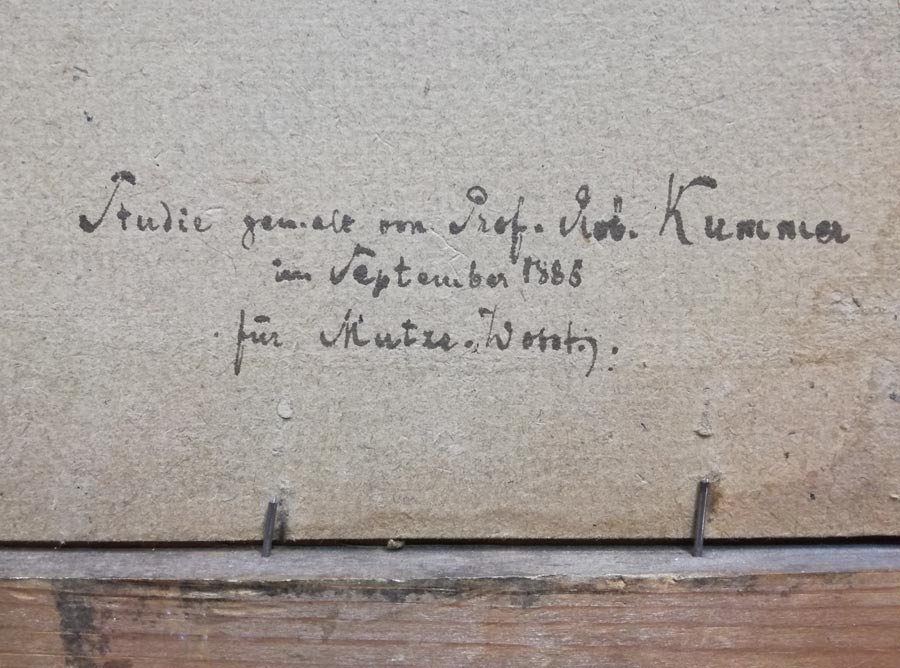 Studie gemalt von Prof. Rob. Kummer
im September 1886
für Mutze.